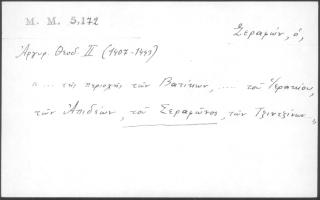 Μ. Μ. 5,172
Ξεραμών, ὁ,
Ἀργυρ. Θεοδ. II (1407-1443)
"... τῆς περιοχῆς τῶν Βατίκων, .... τοῦ Ἱερακίου,
τῶν Ἀπιδεῶν, τοῦ Ξεραμῶνος, τῶν Τζιντζίνων..."